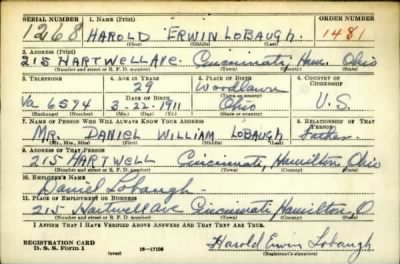 SERIAL NUMBER 1. NAME (Print) ORDER NUMBER
1268 HAROLD ERWIN LOBAUGH. 1481
(First) (Middle) (Last)
2. ADDRESS (Print)
215 HARTWELL AVE. Cincinnati, Ham. Ohio
(Number and street or R. F. D. number) (Town) (County) (State)
3. TELEPHONE 4. AGE IN YEARS 5. PLACE OF BIRTH 6. COUNTRY OF CITIZENSHIP
29 Woodlawn
DATE OF BIRTH (Town or county)
Va 6574 3-22-1911 Ohio U.S.
(Exchange) (Number) (Mo.) (Day) (Yr.) (State or country)
7. NAME OF PERSON WHO WILL ALWAYS KNOW YOUR ADDRESS 8. RELATIONSHIP OF THAT PERSON
MR. DANIEL WILLIAM LOBAUGH Father
(Mr., Mrs., Miss) (First) (Middle) (Last)
9. ADDRESS OF THAT PERSON
215 HARTWELL Cincinnati, Hamilton, Ohio
(Number and street or R. F. D. number) (Town) (County) (State)
10. EMPLOYER'S NAME
Daniel Lobaugh
11. PLACE OF EMPLOYMENT OR BUSINESS
215 Hartwell Ave Cincinnati Hamilton, O.
(Number and street or R. F. D. number) (Town) (County) (State)
I AFFIRM THAT I HAVE VERIFIED ABOVE ANSWERS AND THAT THEY ARE TRUE.
REGISTRATION CARD
D. S. S. Form 1 (over) 16-17105 Harold Erwin Lobaugh
(Registrant's signature)